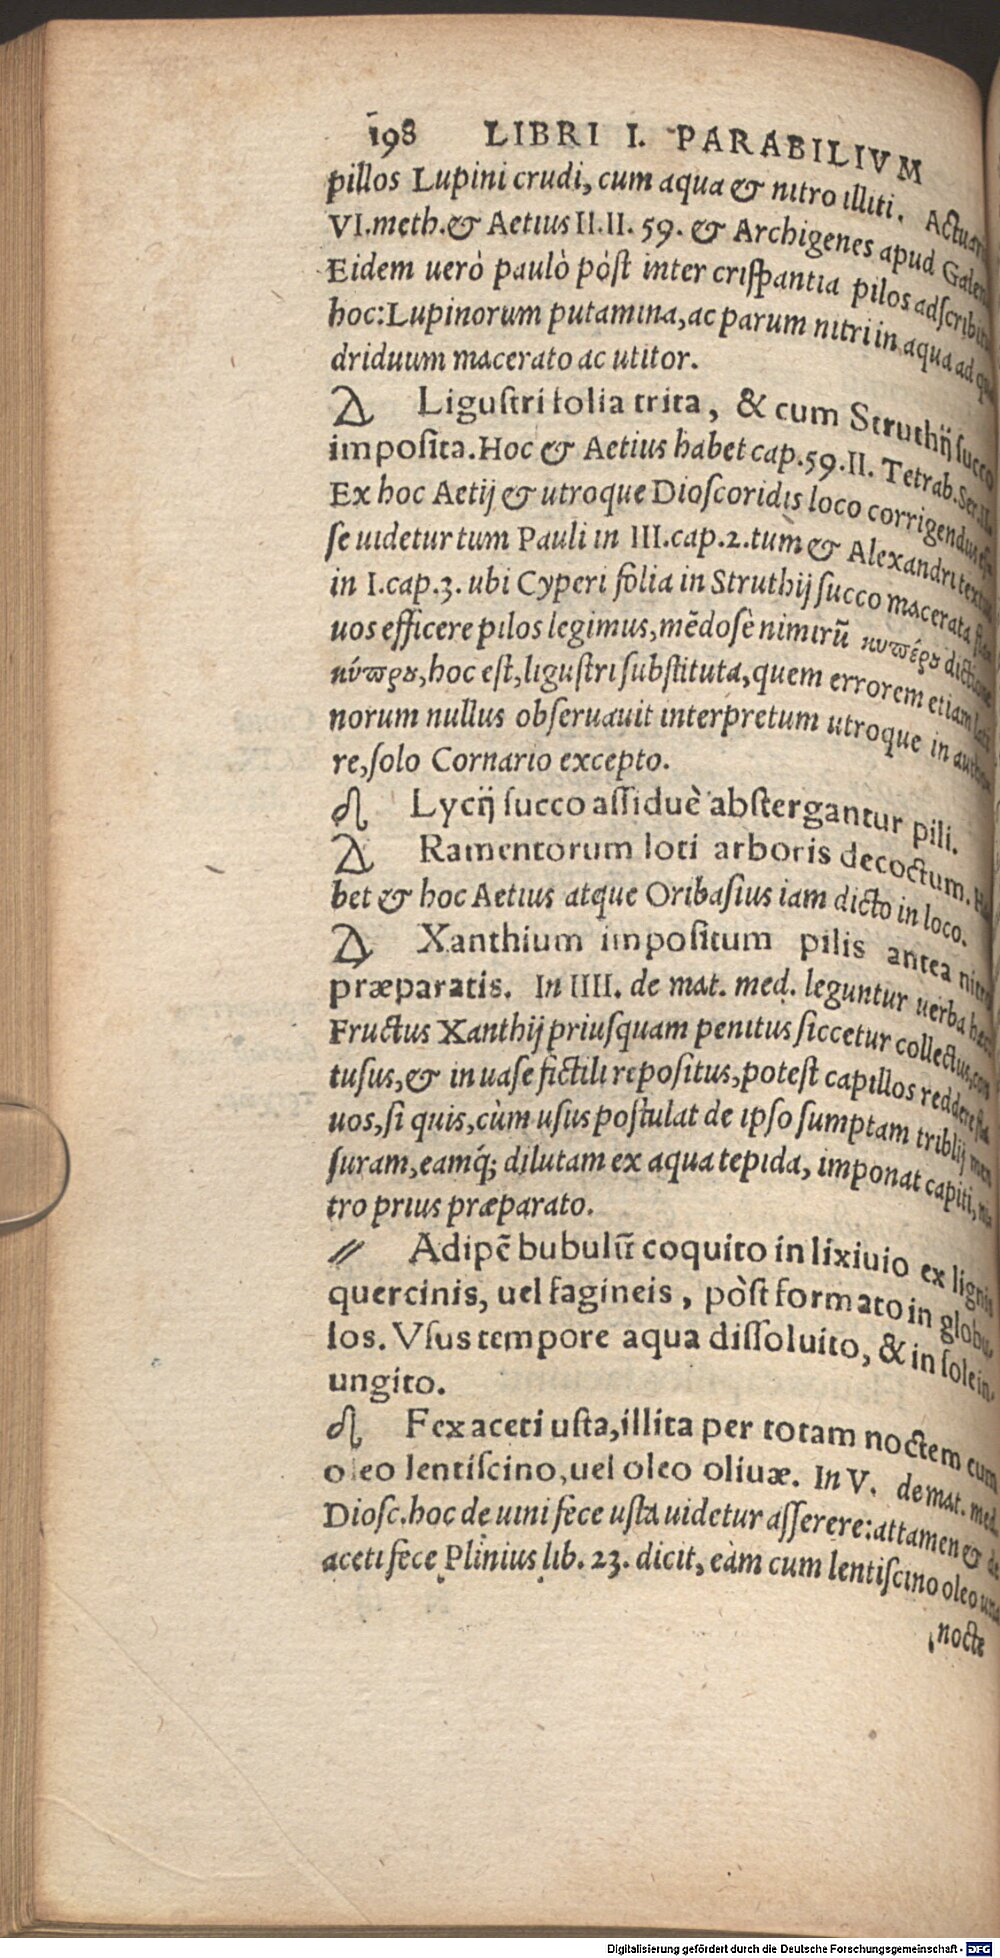 198 LIBRI I. PARABILIVM
pillos Lupini crudi, cum aqua & nitro illiti. Actuari
VI.meth.& Aetius II.II. 59. & Archigenes apud Galen
Eidem uerò paulò pòst inter crispantia pilos adscribit
hoc: Lupinorum putamina, ac parum nitri in aqua ad qua
driduum macerato ac utitor.
Ligustri folia trita, & cum Struthij succo
imposita. Hoc & Aetius habet cap.59.II. Tetrab.Ser.II.
Ex hoc Aetij & utroque Dioscoridis loco corrigendus esse
se uidetur tum Pauli in III.cap.2.tùm & Alexandri textus
in I.cap.3. ubi Cyperi folia in Struthij succo macerata fla
uos efficere pilos legimus, mẽdosè nimirũ κυπέρου dictione
κύπρου, hoc est, ligustri substituta, quem errorem etiam lati
norum nullus obseruauit interpretum utroque in autho
re, solo Cornario excepto.
Lycij succo assiduè abstergantur pili.
Ramentorum loti arboris decoctum. Ha
bet & hoc Aetius atque Oribasius iam dicto in loco.
Xanthium impositum pilis antea nitro
præparatis. In IIII. de mat. med. leguntur uerba hæc:
Fructus Xanthij priusquam penitus siccetur collectus, con
tusus, & in uase fictili repositus, potest capillos reddere fla
uos, si quis, cùm usus postulat de ipso sumptam triblij men
suram, eamq́; dilutam ex aqua tepida, imponat capiti, ni
tro prius præparato.
Adipẽ bubulũ coquito in lixiuio ex lignis
quercinis, uel fagineis, pòst formato in globu,
los. Vsus tempore aqua dissoluito, & in sole in,
ungito.
Fex aceti usta, illita per totam noctem cum
oleo lentiscino, uel oleo oliuæ. In V. de mat. med.
Diosc. hoc de uini fece usta uidetur asserere: attamen & de
aceti fece Plinius lib. 23. dicit, eàm cum lentiscino oleo una
nocte
Digitalisierung gefördert durch die Deutsche Forschungsgemeinschaft - DFG